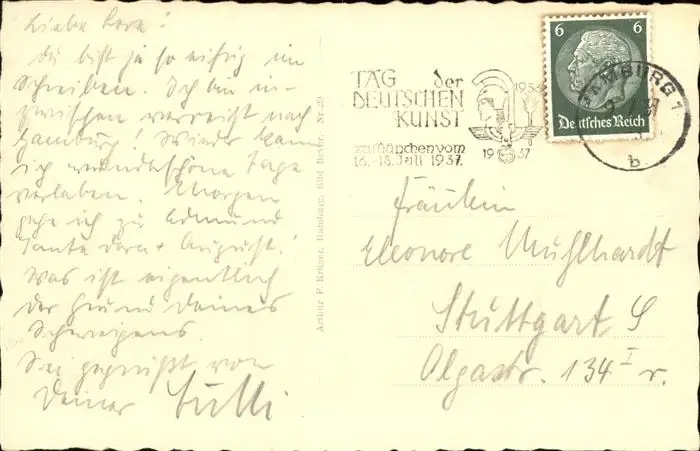 Liebe Lore!
Du bist ja so eifrig im
Schreiben. Ich bin in-
zwischen verreist nach
Hamburg! Wieder kann
ich wunderschöne Tage
verleben. Morgen
gehe ich zu Edmund
Tante Dora + August!
Was ist eigentlich
der Grund Deines
Schweigens.
Sei gegrüßt von
Deiner
Arthur F. Krüger, Hamburg. Bild Bestell. Nr. 39
TAG der
DEUTSCHEN
KUNST
zu München vom
16.-18. Juli 1937.
19 37
6 6
Deutsches Reich
HAMBURG 1
b
Fräulein
Eleonore Muhlhardt
Stuttgart S
Olgastr. 134 I r.